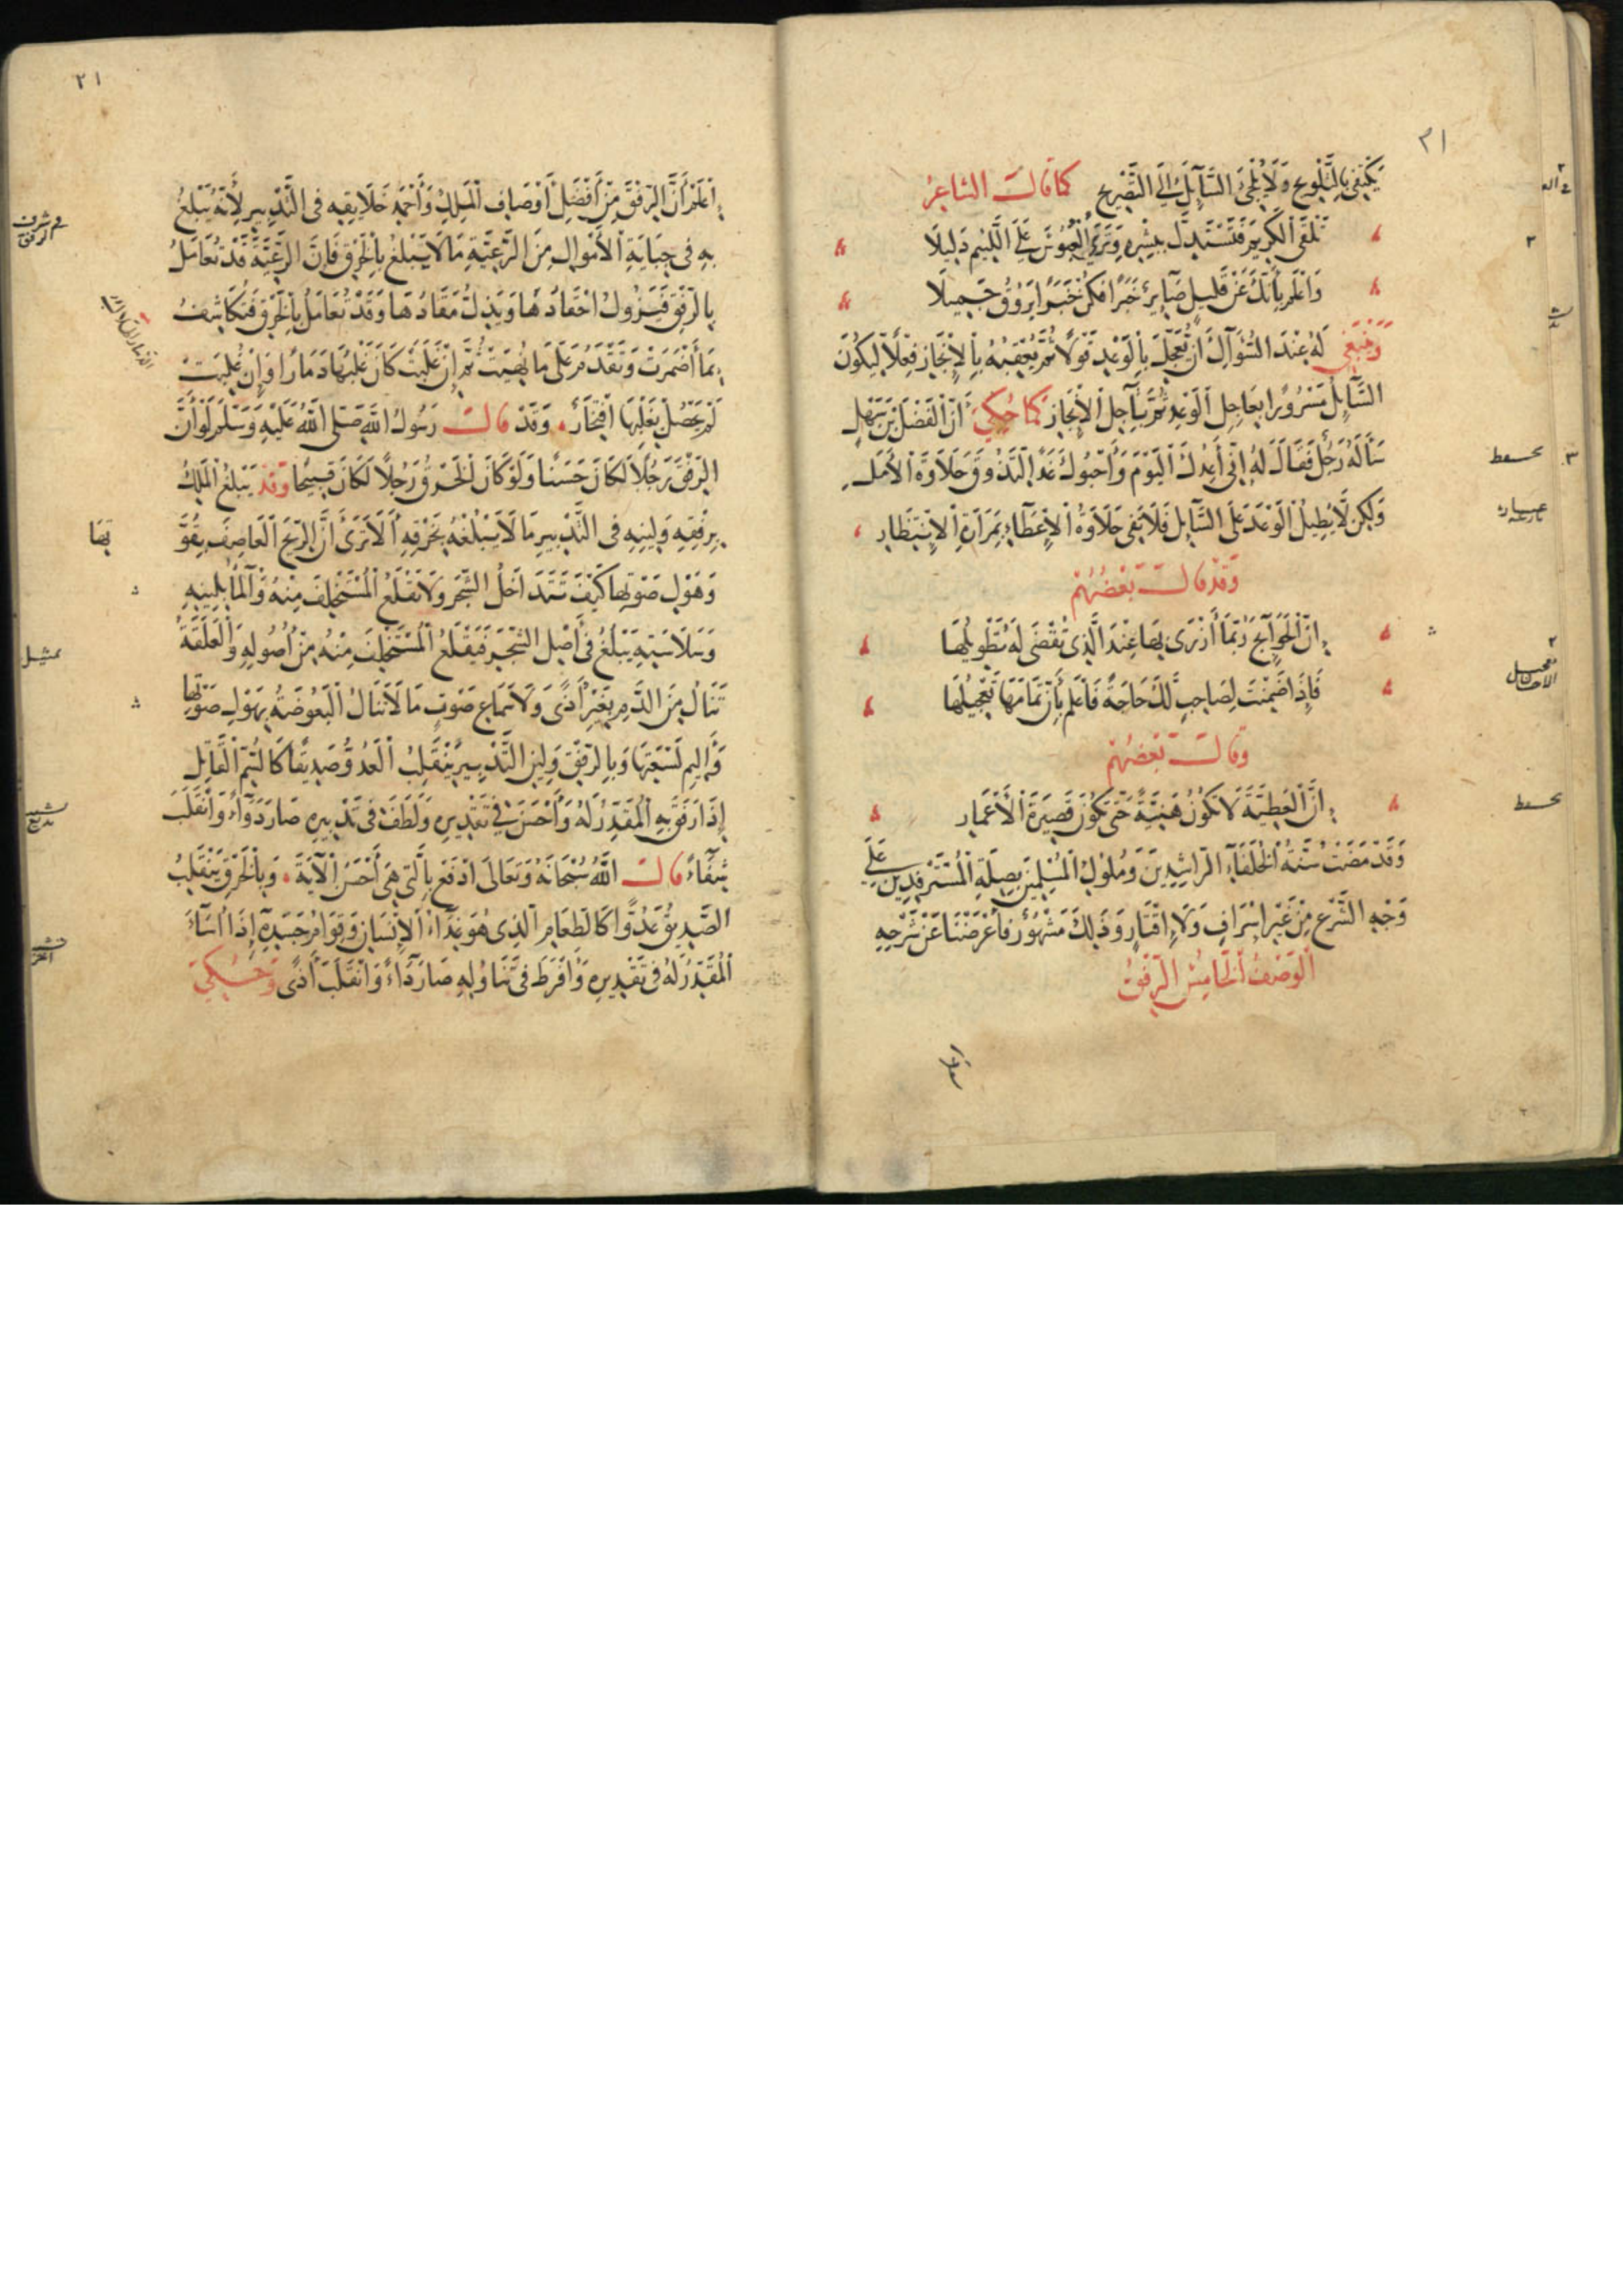 ٢١
يَكْتَفِي بِالتَّلْوِيحِ وَلَا يُلْجِئُ السَّآئِلَ إِلَى التَّصْرِيحِ كَمَا قَالَ الشَّاعِرُ
تَلْقَى الْكَرِيمَ فَتَسْتَدِلُّ بِبِشْرِهِ وَتَرَى الْعُبُوسَ عَلَى اللَّئِيمِ دَلِيلًا
وَاعْلَمْ بِأَنَّكَ عَنْ قَلِيلٍ صَآئِرٌ خَبَرًا فَكُنْ خَبَرًا يَرُوقُ جَمِيلًا
وَيَنْبَغِي لَهُ عِنْدَ السُّؤَالِ أَنْ يُعَجِّلَ بِالْوَعْدِ قَوْلًا ثُمَّ يُعْقِبَهُ بِالْإِنْجَازِ فِعْلًا لِيَكُونَ
السَّآئِلُ مَسْرُورًا بِعَاجِلِ الْوَعْدِ ثُمَّ بِآجِلِ الْإِنْجَازِ كَمَا حُكِيَ أَنَّ الْفَضْلَ بْنَ سَهْلٍ
سَأَلَهُ رَجُلٌ فَقَالَ لَهُ إِنِّي أَعِدُكَ الْيَوْمَ وَأَحْبُوكَ غَدًا لِتَذُوقَ حَلَاوَةَ الْأَمَلِ
وَلَكِنْ لَا يُطِيلُ الْوَعْدَ عَلَى السَّآئِلِ فَلَا تَفِي حَلَاوَةُ الْإِعْطَاءِ بِمَرَارَةِ الْاِنْتِظَارِ
وَقَدْ قَالَ بَعْضُهُمْ
إِنَّ الْحَوَآئِجَ رُبَّمَا أَزْرَى بِهَا عِنْدَ الَّذِي تُقْضَى لَهُ تَطْوِيلُهَا
فَإِذَا ضَمِنْتَ لِصَاحِبٍ لَكَ حَاجَةً فَاعْلَمْ بِأَنَّ تَمَامَهَا تَعْجِيلُهَا
وَقَالَ بَعْضُهُمْ
إِنَّ الْعَطِيَّةَ لَا تَكُونُ هَنِيَّةً حَتَّى تَكُونَ قَصِيرَةَ الْأَعْمَارِ
وَقَدْ مَضَتْ سُنَّةُ الْخُلَفَآءِ الرَّاشِدِينَ وَمُلُوكِ الْمُسْلِمِينَ بِصِلَةِ الْمُسْتَرْفِدِينَ عَلَى
وَجْهِ الشَّرْعِ مِنْ غَيْرِ إِسْرَافٍ وَلَا إِقْتَارٍ وَذَلِكَ مَشْهُورٌ فَأَعْرَضْنَا عَنْ شَرْحِهِ
الْوَصْفُ الْخَامِسُ الرِّفْقُ
اعلم
٢١
اعْلَمْ أَنَّ الرِّفْقَ مِنْ أَفْضَلِ أَوْصَافِ الْمَلِكِ وَأَحْمَدِ خَلَايِقِهِ فِي التَّدْبِيرِ لِأَنَّهُ يَبْلُغُ
بِهِ فِي جِبَايَةِ الْأَمْوَالِ مِنَ الرَّعِيَّةِ مَا لَا يَبْلُغُ بِالْخَرْقِ فَإِنَّ الرَّعِيَّةَ قَدْ تُعَامَلُ
بِالرِّفْقِ فَيَزُولُ احْقَادُهَا وَيَذِلُّ مَقَادُهَا وَقَدْ تُعَامَلُ بِالْخَرْقِ فَتُكَاشِفُ
بِمَا أَضْمَرَتْ وَتَقْدَمُ عَلَى مَا نُهِيَتْ ثُمَّ إِنْ غَلَبَتْ كَانَ غَلَبُهَا دَمَارًا وَإِنْ غُلِبَتْ
لَمْ يَحْصُلْ بِغَلَبِهَا افْتِخَارٌ وَقَدْ قَالَ رَسُولُ اللَّهِ صَلَّى اللَّهُ عَلَيْهِ وَسَلَّمَ لَوْ أَنَّ
الرِّفْقَ رَجُلًا لَكَانَ حَسَنًا وَلَوْ كَانَ الْخَرْقُ رَجُلًا لَكَانَ قَبِيحًا وَقَدْ يَبْلُغُ الْمَلِكُ
بِرِفْقِهِ وَلِينِهِ فِي التَّدْبِيرِ مَا لَا يَبْلُغُهُ بِخَرْقِهِ أَلَا تَرَى أَنَّ الرِّيحَ الْعَاصِفَ بِقُوَّتِهَا
وَهَوْلِ صَوْتِهَا كَيْفَ تَتَدَاخَلُ الشَّجَرَ وَلَا تَقْلَعُ الْمُسْتَخْلِفَ مِنْهُ وَالْمَآءُ بِلِينِهِ
وَسَلَاسَتِهِ يَبْلُغُ فِي أَصْلِ الشَّجَرِ فَيَقْلَعُ الْمُسْتَخْلِفَ مِنْهُ مِنْ أُصُولِهِ وَالْعَلَقَةُ
تَنَالُ مِنَ الدَّمِ بِغَيْرِ أَذًى وَلَا سَمَاعِ صَوْتٍ مَا لَا تَنَالُ الْبَعُوضَةُ بِهَوْلِ صَوْتِهَا
وَأَلِيمِ لَسْعَتِهَا وَبِالرِّفْقِ وَلِينِ التَّدْبِيرِ يَنْقَلِبُ الْعَدُوُّ صَدِيقًا كَالسُّمِّ الْقَاتِلِ
إِذَا رَفِقَ بِهِ الْمُقَدِّرُ لَهُ وَأَحْسَنَ فِي تَقْدِيرِهِ وَلَطَفَ فِي تَدْبِيرِهِ صَارَ دَوَآءً وَانْقَلَبَ
شِفَآءً قَالَ اللَّهُ سُبْحَانَهُ وَتَعَالَى ادْفَعْ بِالَّتِي هِيَ أَحْسَنُ الْآيَةَ وَبِالْخَرْقِ يَنْقَلِبُ
الصَّدِيقُ عَدُوًّا كَالطَّعَامِ الَّذِي هُوَ غِذَآءُ الْإِنْسَانِ وَقِوَامُ جَسَدِهِ إِذَا أَسَآءَ
الْمُقَدِّرُ لَهُ فِي تَقْدِيرِهِ وَأَفْرَطَ فِي تَنَاوُلِهِ صَارَ دَآءً وَانْقَلَبَ أَذًى وَحُكِيَ